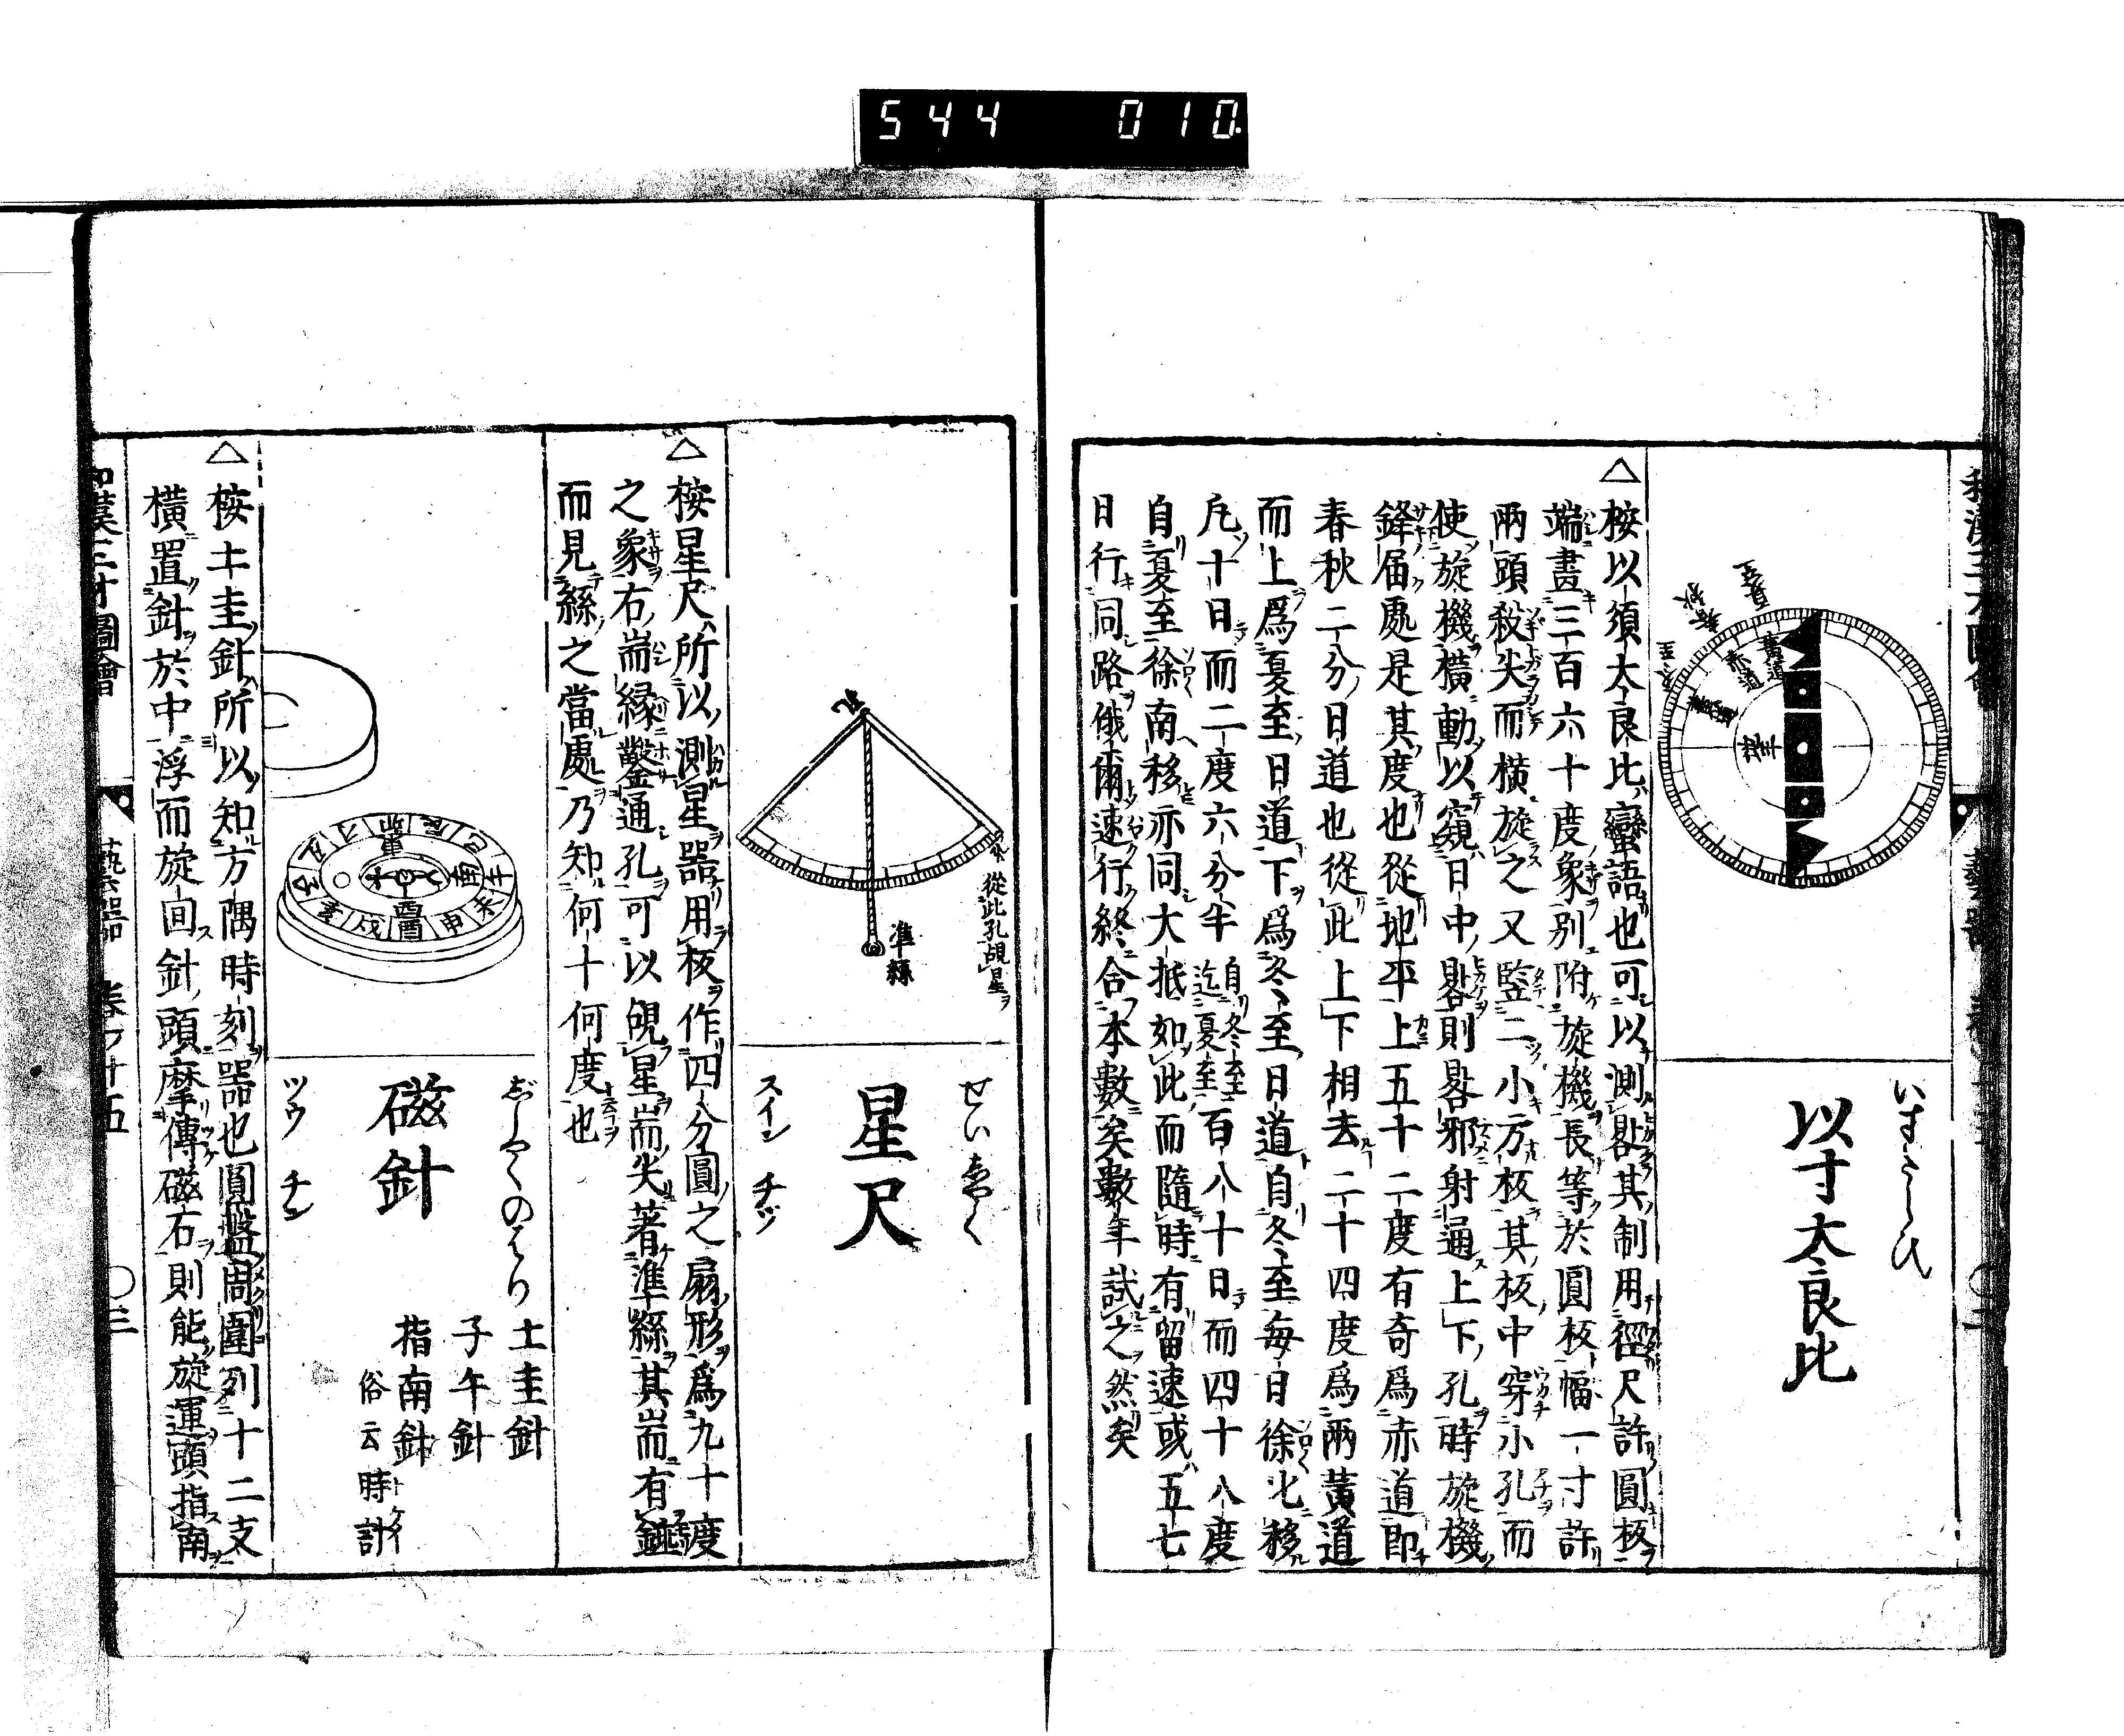 544 010
以寸太良比
△按以須太良比蠻語也可以測晷其制用徑尺許圓板
端畫三百六十度象別附旋機長等於圓板幅一寸許
兩頭殺尖而横旋之又竪二小方板其板中穿小孔而
使旋機横動以窺日中晷則晷邪射通上下孔時旋機
鋒届處是其度也從地平上五十二度有奇爲赤道即
春秋二分日道也從此上下相去二十四度爲兩黃道
而上爲夏至日道下爲冬至日道自冬至每日徐北移
凡十日而二度六分半自冬至迄夏至百八十日而四十八度
自夏至徐南移亦同大抵如此而隨時有留速或五七
日行同路俄爾速行終合本數矣數年試之然矣
黃道
赤道
黃道
從此孔覘星ヲ
準絲
せいしやく
星尺
スイン チツ
△按星尺所以測星器用板作四分圓之扇形爲九十度
之象右耑縁鑿通孔可以覘星耑尖著準絲其耑有錘
而見絲之當處乃知何十何度也
東
南
午
未
申
酉
戌
亥
じしやくのはり
磁針
ツウ チン
土圭針
子午針
指南針
俗云時計
トケイ
△按土圭針所以知方隅時刻器也圓盤周圍列十二支
横置針於中浮而旋回針頭摩傳磁石則能旋運頭指南
和漢三才圖會
藝器 卷ノ十五
〇三